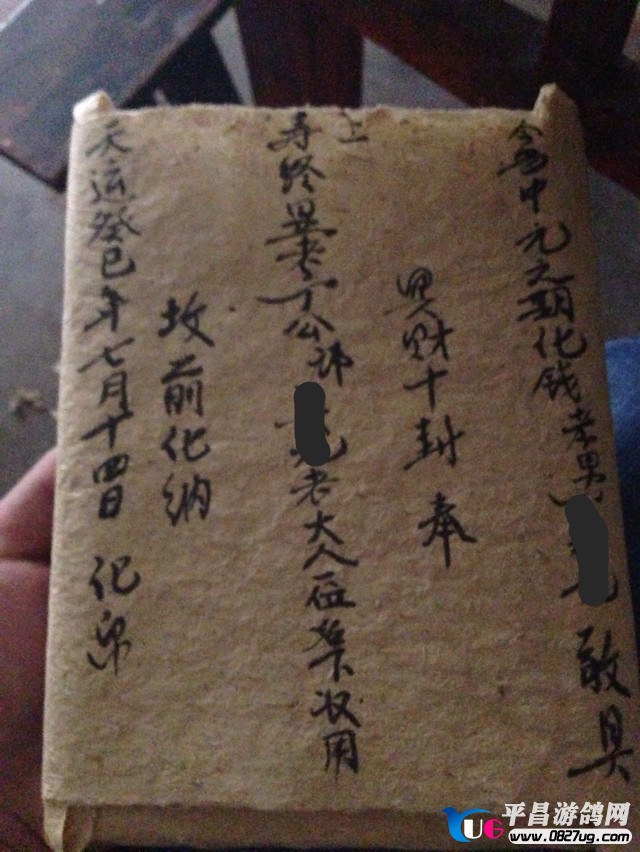 今当中元之期化钱孝男 敢具
冥财十封 奉
上
寿终显考丁公讳 老大人正魂下收用
坟前化纳
天运癸巳年七月十四日 化帛
平昌游鸽网
www.0827ug.com